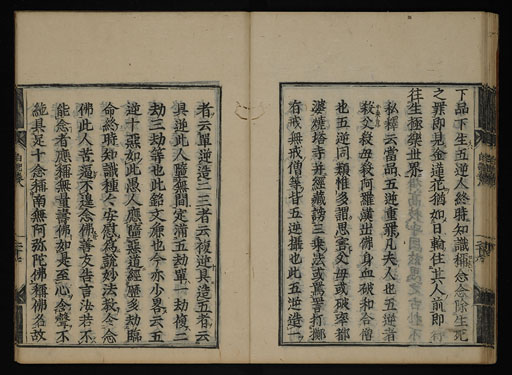 下品下生五逆人終時知識稱念念除生死
之罪即見金蓮花猶如日輪住其人前即行
往生極樂世界
私釋云當品五逆重罪凡夫人也五逆者
殺父殺母殺阿羅漢出佛身血破和合僧
也五逆同類惟多謂思害父母或破率都
婆燒塔寺并經藏謗三乘法或罵詈打擲
有戒無戒僧等皆五逆攝也此五逆造一
者云單逆造二三者云複逆具造五者云
具逆此人墮無間定滿五劫單一劫複二
劫三劫等也此銘文廣也今亦少畧云五
逆十惡如此愚人應墮惡道經歷多劫臨
命終時知識種々安慰爲說妙法教令念
佛此人苦逼不遑念佛善友告言汝若不
能念者應稱無量壽佛如是至心令聲不
絶具足十念稱南無阿弥陀佛稱佛名故